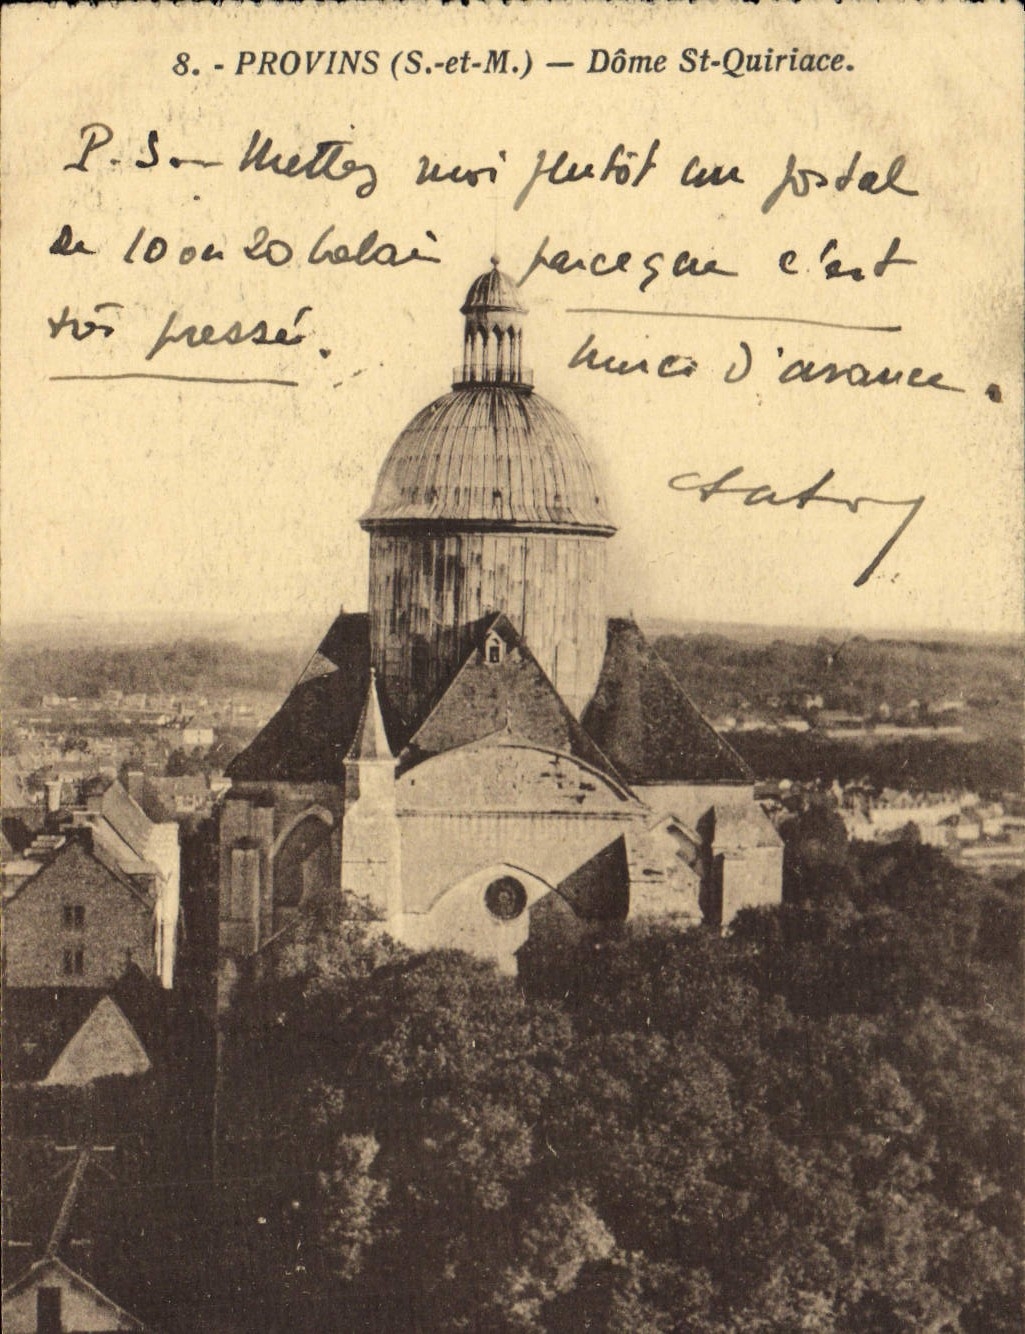 8. - PROVINS (S.-et-M.) — Dôme St-Quiriace.
P. S. — Mettez moi plutôt un postal
de 10 ou 20 balais parceque c'est
très pressé.
Merci d'avance.